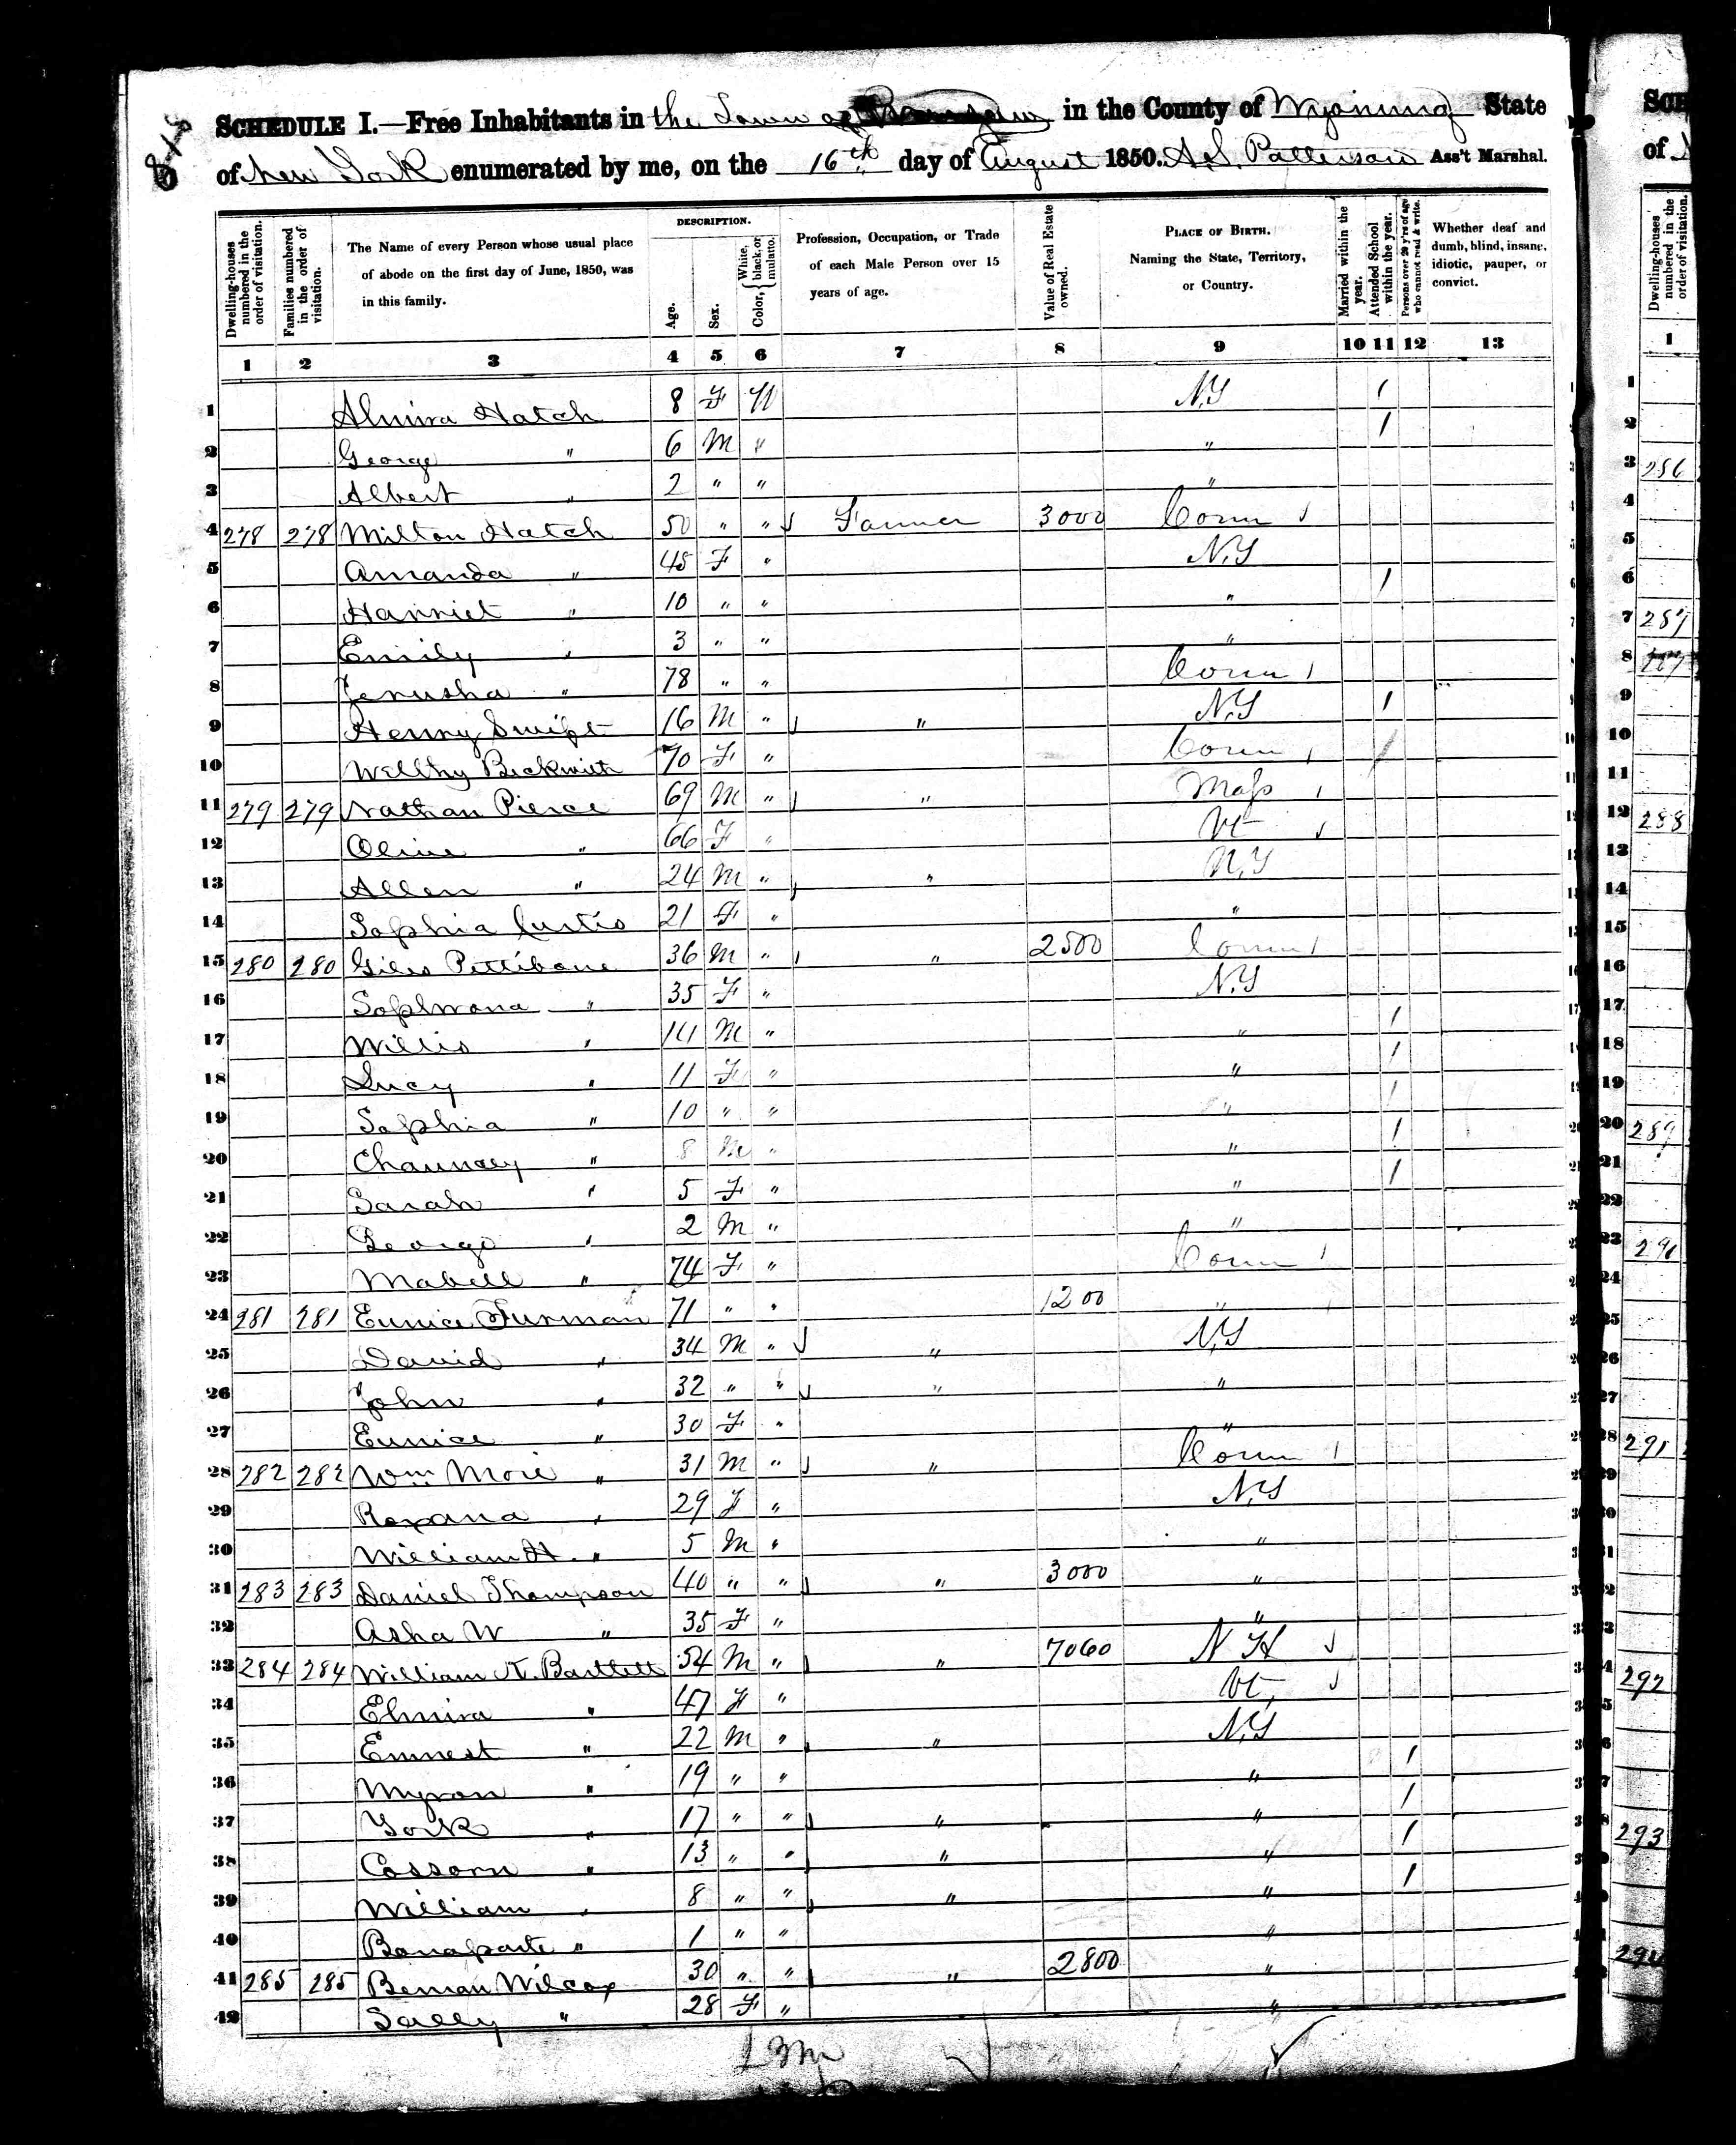 SCHEDULE I.—Free Inhabitants in the Town of in the County of Wyoming State
of New York enumerated by me, on the 16th day of August 1850. A.S. Patterson Ass't Marshal.
Dwelling-houses numbered in the order of visitation.
Families numbered in the order of visitation.
The Name of every Person whose usual place of abode on the first day of June, 1850, was in this family.
DESCRIPTION.
Age.
Sex.
Color, { White, black, or mulatto.
Profession, Occupation, or Trade of each Male Person over 15 years of age.
Value of Real Estate owned.
PLACE OF BIRTH. Naming the State, Territory, or Country.
Married within the year.
Attended School within the year.
Persons over 20 y'rs of age who cannot read & write.
Whether deaf and dumb, blind, insane, idiotic, pauper, or convict.
1 2 3 4 5 6 7 8 9 10 11 12 13
1 Almira Hatch 8 F W N.Y 1
2 George " 6 M " " 1
3 Albert " 2 " " "
4 278 278 Milton Hatch 50 " " Farmer 3000 Conn
5 Amanda " 45 F " N.Y
6 Harriet " 10 " " " 1
7 Emily " 3 " " "
8 Jerusha " 78 " " Conn
9 Henry Swift 16 M " " N.Y 1
10 Wellthy Beckwith 70 F " Conn /
11 279 279 Nathan Pierce 69 M " " Mass
12 Olive " 66 F " Vt
13 Allen " 24 M " " N.Y
14 Sophia Curtis 21 F " "
15 280 280 Giles Pettibone 36 M " " 2500 Conn
16 " 35 F " N.Y
17 Willis " 14 M " " 1
18 Lucy " 11 F " " 1
19 Sophia " 10 " " " 1
20 Chauncey " 8 M " " 1
21 Sarah " 5 F " " 1
22 George " 2 M " "
23 Mabell " 74 F " Conn
24 281 281 Eunice Furman 71 " " 1200 "
25 David " 34 M " " N.Y
26 John " 32 " " " "
27 Eunice " 30 F " "
28 282 282 Wm More " 31 M " " Conn
29 Roxana " 29 F " N.Y
30 William H. " 5 M " "
31 283 283 Daniel Thompson 40 " " " 3000 "
32 Asha W " 35 F " "
33 284 284 William N. Bartlett 54 M " " 7060 N H
34 Elmira " 47 F " Vt,
35 Emnest " 22 M " " N.Y
36 Myron " 19 " " " 1
37 York " 17 " " " " 1
38 Cossorn " 13 " " " " 1
39 William " 8 " " " " 1
40 Bonaparte " 1 " " "
41 285 285 Beman Wilcox 30 " " " 2800 "
42 Sally " 28 F " "
SCH
of
Dwelling-houses numbered in the order of visitation.
1
286
287
288
289
290
291
292
293
294